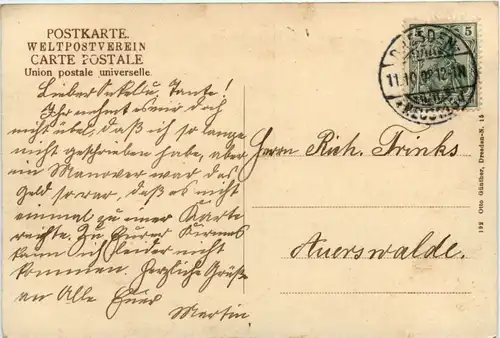 POSTKARTE.
WELTPOSTVEREIN
CARTE POSTALE
Union postale universelle.
5
DRESDEN
11.10.
Lieber Onkel u. Tante!
Ihr nehmt es mir doch
nicht übel, daß ich so lange
nicht geschrieben habe, aber
im Manöver war das
Geld so rar, daß es nicht
einmal zu einer Karte
reichte. Zu Eurer Kirmes
kann ich leider nicht
kommen. Herzliche Grüße
an Alle Euer
Martin
Herrn Rich. Trinks
Auerswalde.
192 Otto Günther, Dresden-N. 15